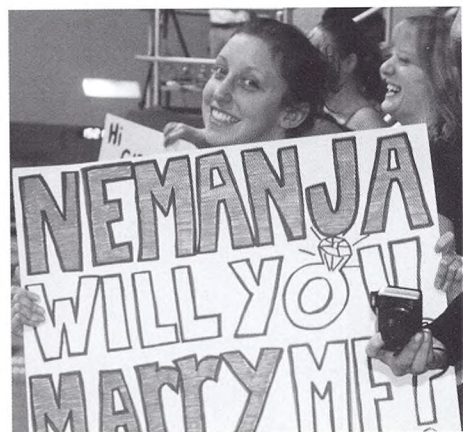 Hi
NEMANJA
WILL YOU
MArry ME!